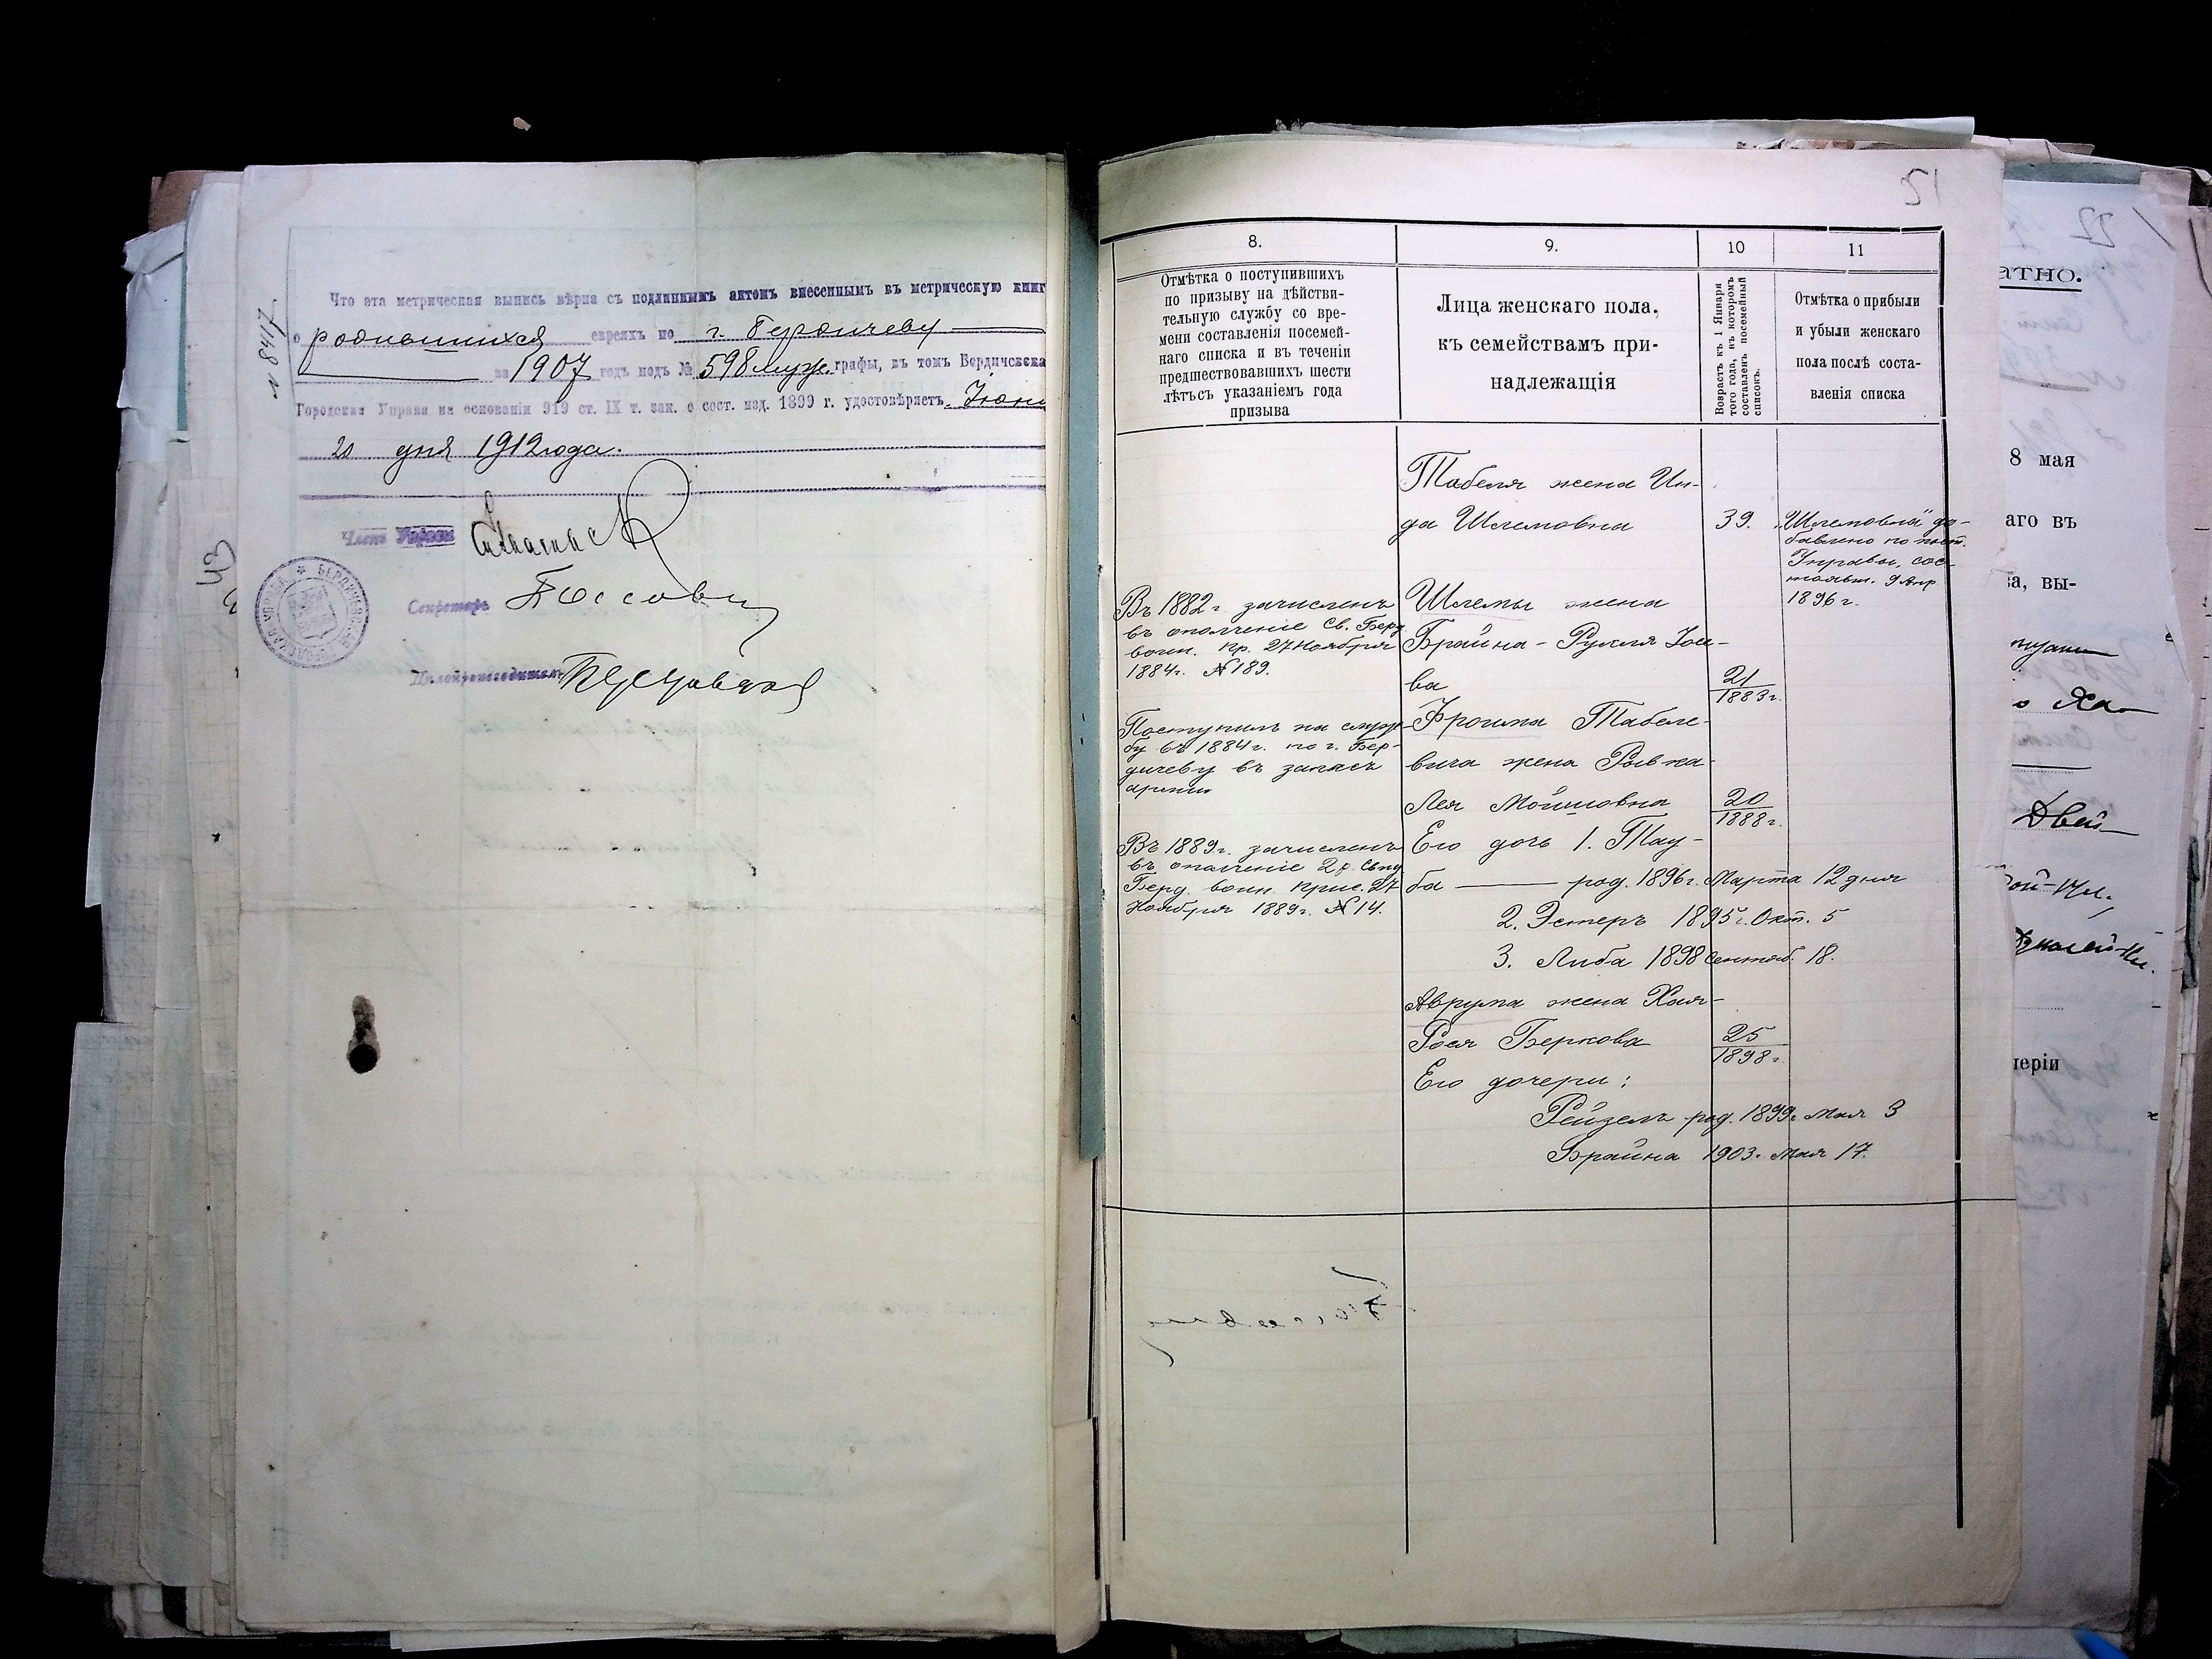 Что эта метрическая выпись вѣрна съ подлиннымъ актомъ внесеннымъ въ метрическую книг
о родившихся евреяхъ по г. Бердичеву
за 1907 годъ подъ № 598 муж. графы, въ томъ Бердичевска
Городская Управа на основаніи 919 ст. IX т. зак. о сост. изд. 1899 г. удостовѣряетъ. Іюня
20 дня 1912 года.
Членъ Управы
Секретарь
Дѣлопроизводитель
БЕРДИЧЕВСКАЯ ГОРОДСКАЯ УПРАВА
43
51
8.
Отмѣтка о поступившихъ
по призыву на дѣйстви-
тельную службу со вре-
мени составленія посемей-
наго списка и въ теченіи
предшествовавшихъ шести
лѣтъ съ указаніемъ года
призыва
Въ 1882 г. зачисленъ
въ ополченіе Св. Берд.
воин. пр. 27 Ноября
1884 г. № 189.
Поступилъ на служ-
бу въ 1884 г. по г. Бер-
дичеву въ запасъ
арміи
Въ 1889 г. зачисленъ
въ ополченіе
Берд. воин. прис. 27
Ноября 1889 г. № 14.
9.
Лица женскаго пола,
къ семействамъ при-
надлежащія
Табеля жена Ин-
да Шлемовна
Шлемы жена
Брайна-Рухля Іос-
ва
Фроима Табеле-
вича жена Ривка-
Лея Мошковна
Его дочь 1. Тау-
ба — род. 1896 г. Марта 12 дня
2. Эстеръ 1895 г. Окт. 5
3. Либа 1898 Сентяб. 18.
Аврума жена Хая-
Рося Беркова
Его дочери:
Рейзель род. 1899 г. Мая 3
Брайна 1903 г. Мая 17.
10
Возрастъ къ 1 Января
того года, въ которомъ
составленъ посемейный
списокъ.
39.
21
1883 г.
20
1888 г.
25
1898 г.
11
Отмѣтка о прибыли
и убыли женскаго
пола послѣ соста-
вленія списка
„Шлемовна" до-
бавлено по пост.
Управы, сос-
тоявш. 9 Апр
1896 г.
22
атно.
8 мая
аго въ
а, вы-
о Ха-
Двей-
перiи